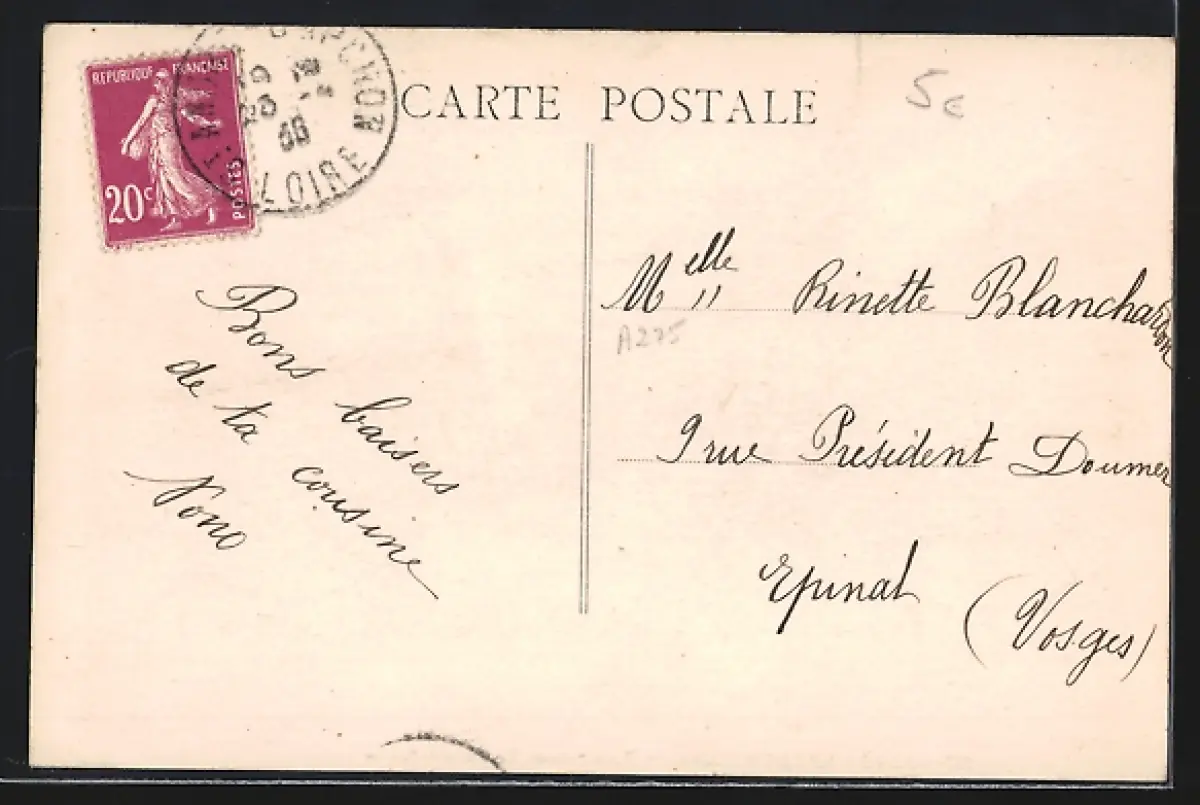 REPUBLIQUE FRANÇAISE
20c
POSTES
D'APCHON
LOIRE
CARTE POSTALE
5€
Melle Rinette Blanchardon
A275
9 rue Président Doumer
Epinal
(Vosges)
Bons baisers
de ta cousine
Nono